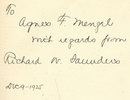 To
Agnes F Mengel
with regards from
Richard W. Saunders
Dec 9-1925